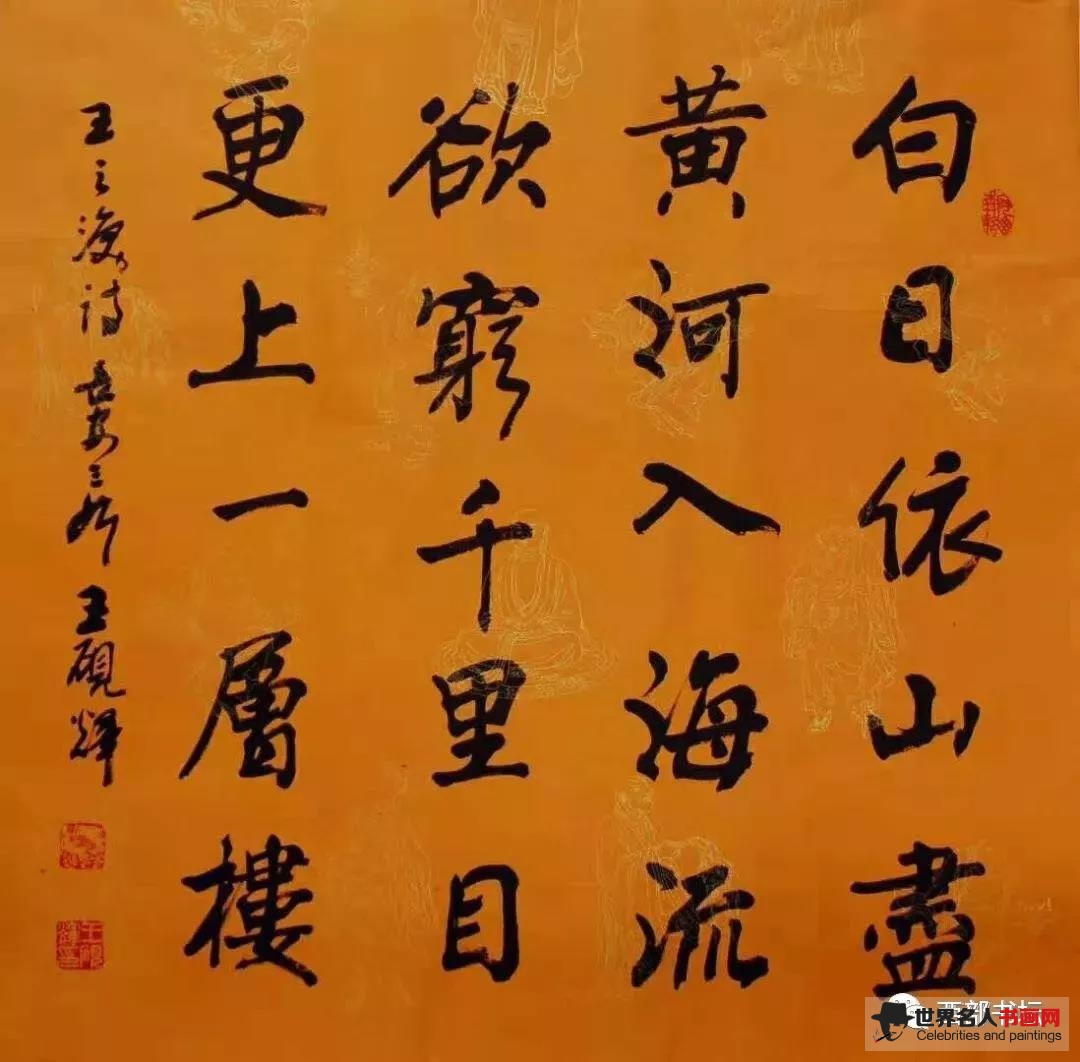 白日依山盡
黄河入海流
欲窮千里目
更上一層樓
王之渙詩 長安三石 王硯輝
西部书坛
世界名人书画网
Celebrities and paintings